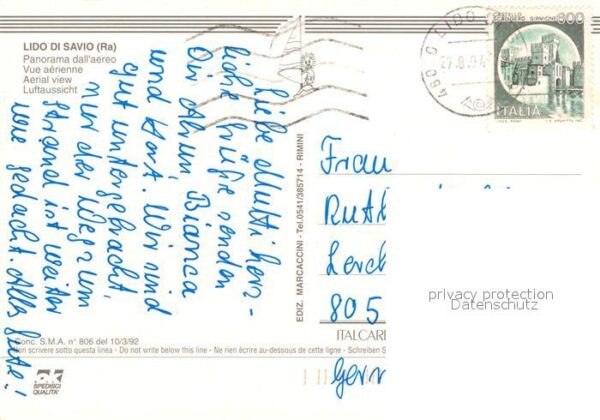 LIDO DI SAVIO (Ra)
Panorama dall'aereo
Vue aérienne
Aerial view
Luftaussicht
Liebe Mutti herz-
liche Grüße senden
Dir Armin Bianca
und Horst. Wir sind
gut untergebracht,
nur der Weg zum
Strand ist weiter
wie gedacht. Alles Gute!
EDIZ. MARCACCINI - Tel. 0541/385714 - RIMINI
27.8.94
SIRMIONE 800
ITALIA
Frau
Ruth
Lerch
805
Gerr
privacy protection
Datenschutz
ITALCAR
Conc. S.M.A. n° 806 del 10/3/92
Non scrivere sotto questa linea - Do not write below this line - Ne rien écrire au-dessous de cette ligne - Schreiben S
SPEDISCI
QUALITA'